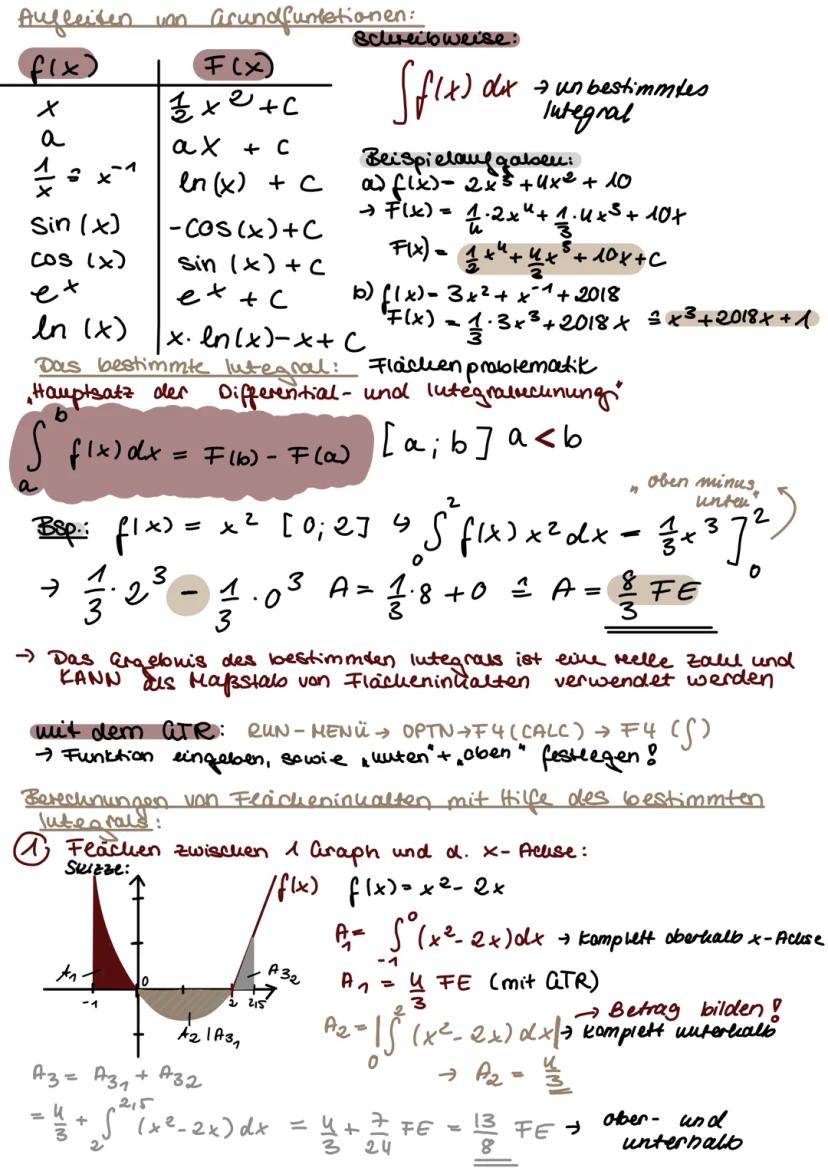 Aufleiten von Grundfunktionen:
Schreibweise:
f(x) F(x)
∫f(x) dx → unbestimmtes
Integral
x ½x² + C
a ax + C
1/x ≙ x⁻¹ ln(x) + C
sin (x) -cos(x)+C
cos (x) sin (x) + C
eˣ eˣ + C
ln (x) x·ln(x)-x+C
Beispielaufgaben:
a) f(x)= 2x³+4x²+10
→ F(x) = 1/4·2x⁴+1/3·4x³+10x
F(x)= 1/2x⁴+4/3x³+10x+C
b) f(x)= 3x²+x⁻¹+2018
F(x) = 1/3·3x³+2018x ≙ x³+2018x+1
Das bestimmte Integral: Flächenproblematik
„Hauptsatz der Differential- und Integralrechnung"
∫ₐᵇ f(x)dx = F(b) - F(a) [a;b] a<b
„oben minus
unten"
Bsp.: f(x) = x² [0;2] ↳ ∫₀² f(x) x²dx = 1/3x³]₀²
→ 1/3·2³ - 1/3·0³ A = 1/3·8+0 ≙ A = 8/3 FE
→ Das Ergebnis des bestimmten Integrals ist eine reelle Zahl und
KANN als Maßstab von Flächeninhalten verwendet werden
mit dem GTR: RUN-MENÜ → OPTN→F4(CALC) → F4 (∫)
→ Funktion eingeben, sowie „unten"+„oben" festlegen!
Berechnungen von Flächeninhalten mit Hilfe des bestimmten
Integrals:
① Flächen zwischen 1 Graph und d. x-Achse:
Skizze:
f(x) f(x)=x²-2x
A₁= ∫₋₁⁰ (x²-2x)dx → komplett oberhalb x-Achse
A₁ = 4/3 FE (mit GTR)
A₁ 0 A3₂
-1 2 2,5
A₂|A3₁
→ Betrag bilden!
A₂=|∫₀² (x²-2x)dx| → komplett unterhalb
→ A₂ = 4/3
A₃ = A3₁ + A3₂
= 4/3 + ∫₂²˒⁵ (x²-2x)dx = 4/3 + 7/24 FE = 13/8 FE → ober- und
unterhalb